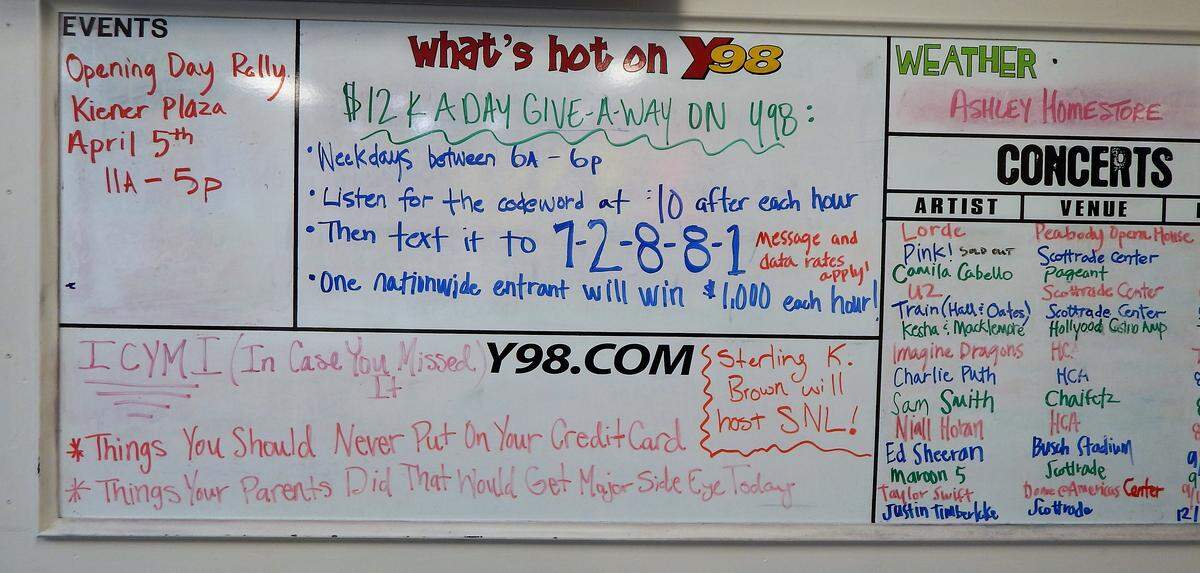 EVENTS
Opening Day Rally
Kiener Plaza
April 5th
11A - 5p
what's hot on Y98
$12K A DAY GIVE-A-WAY ON Y98:
• Weekdays between 6A - 6p
• Listen for the codeword at :10 after each hour
• Then text it to 7-2-8-8-1 Message and
data rates
apply!
• One nationwide entrant will win $1,000 each hour!
ICYMI (In Case You Missed
It)
Y98.COM
Sterling K.
Brown will
host SNL!
* Things You Should Never Put On Your Credit Card
* Things Your Parents Did That Would Get Major Side Eye Today
WEATHER
ASHLEY HOMESTORE
CONCERTS
ARTIST VENUE
Lorde Peabody Opera House
Pink! SOLD OUT Scottrade Center
Camila Cabello Pageant
U2 Scottrade Center
Train (Hall & Oates) Scottrade Center
Kesha & Macklemore Hollywood Casino Amp
Imagine Dragons HCA
Charlie Puth HCA
Sam Smith Chaifetz
Niall Horan HCA
Ed Sheeran Busch Stadium
Maroon 5 Scottrade
Taylor Swift Dome @ Americas Center
Justin Timberlake Scottrade 12/